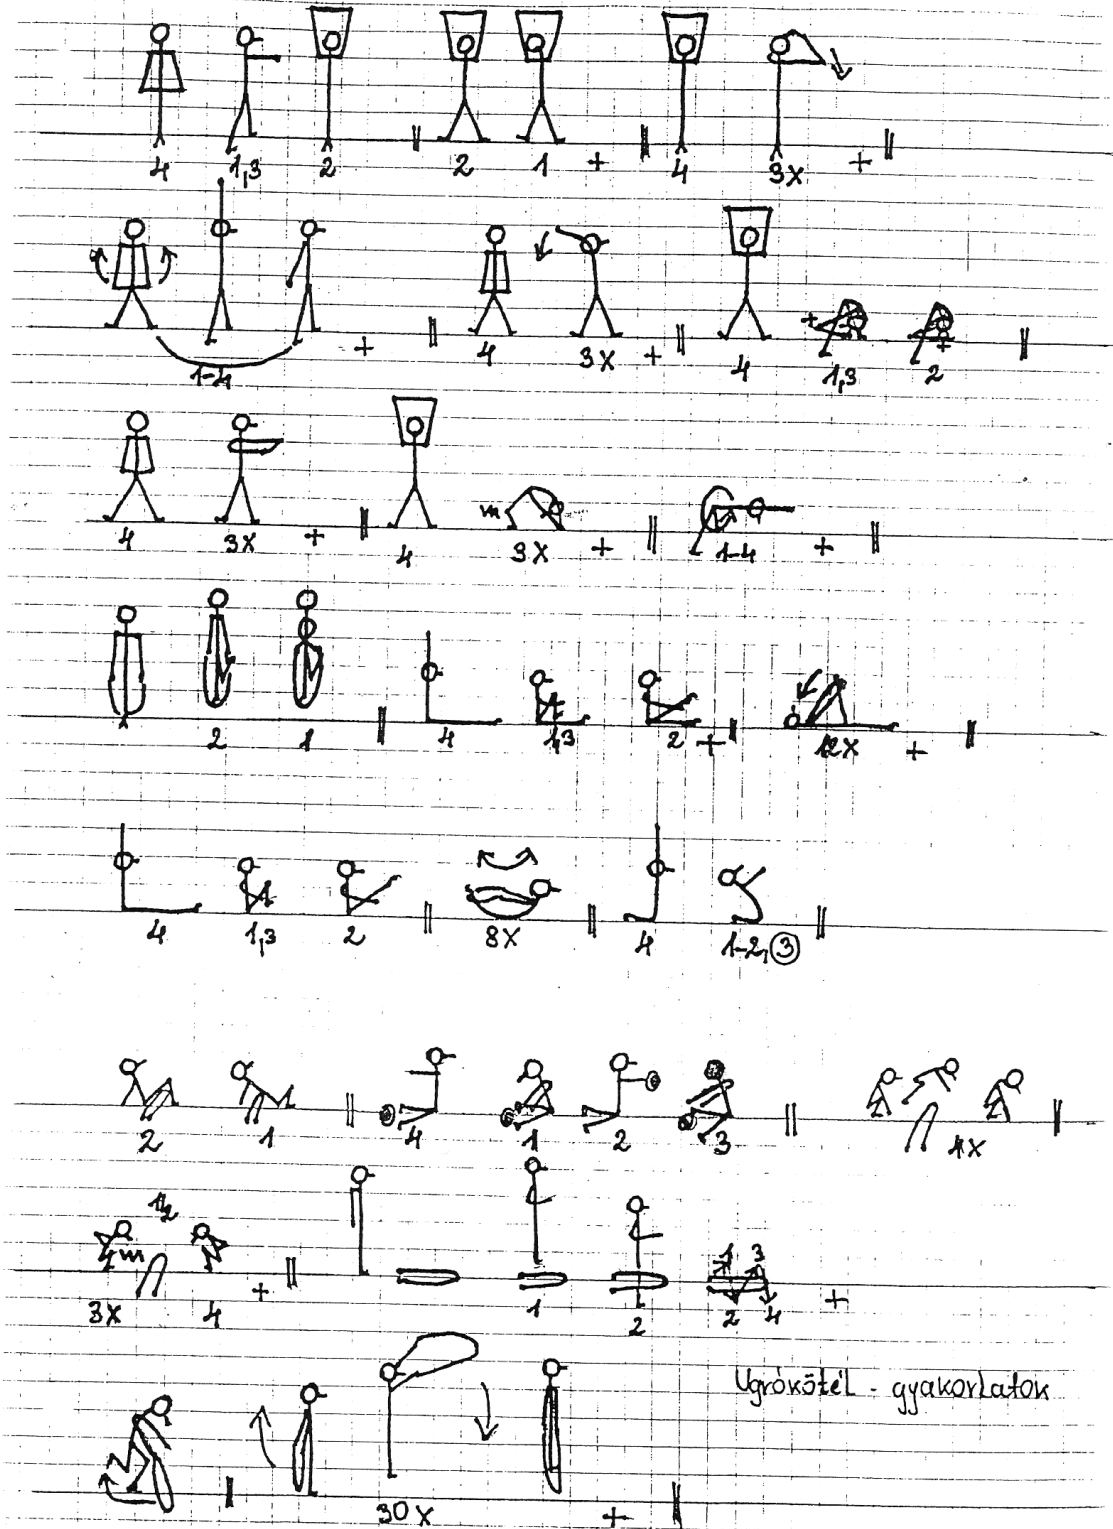 4 1,3 2 ‖ 2 1 + ‖ 4 3x + ‖
1-4 + ‖ 4 3x + ‖ 4 1,3 2 ‖
4 3x + ‖ 4 m 3x + ‖ 1-4 + ‖
2 1 ‖ 4 1,3 2 + ‖ 12x + ‖
4 1,3 2 ‖ 8x ‖ 4 1-2, ③ ‖
2 1 ‖ 4 1 2 3 ‖ 1x ‖
1/2
m
3x 4 + ‖ 1 2 1 2 3 4 +
Ugrókötél - gyakorlatok
‖ 30x + ‖